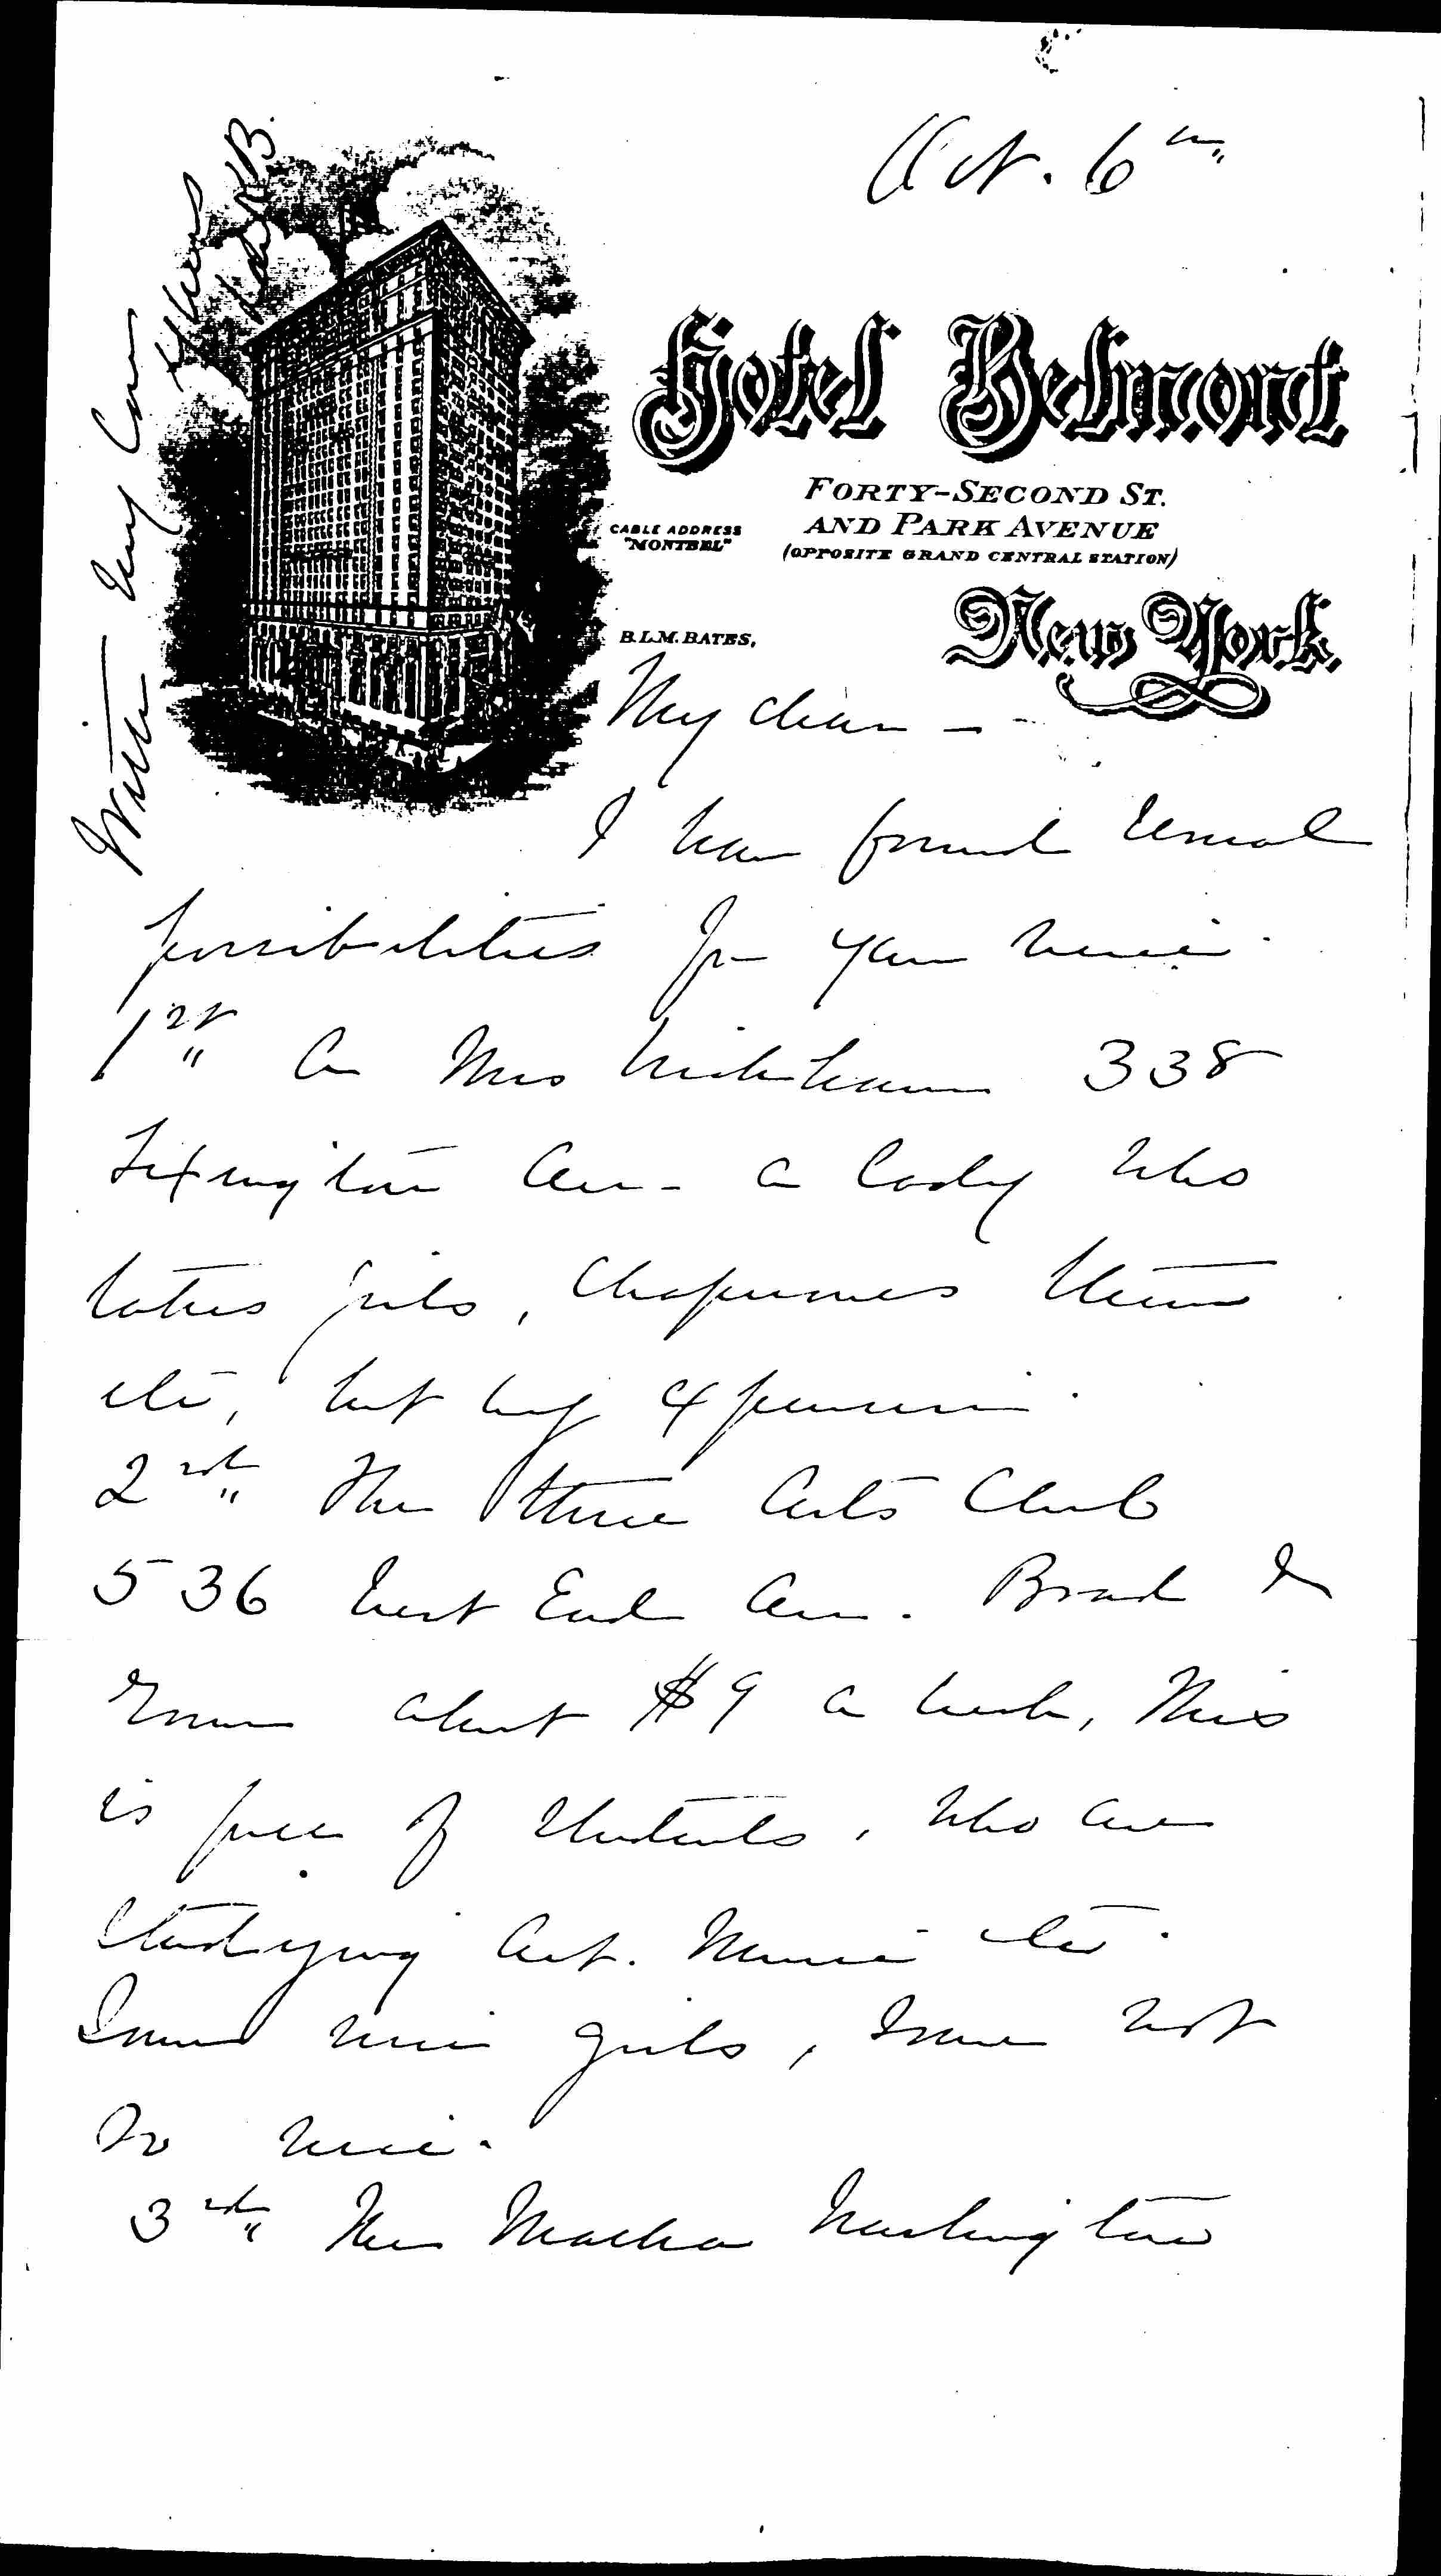 Oct. 6th
Hotel Belmont
FORTY-SECOND ST.
AND PARK AVENUE
(OPPOSITE GRAND CENTRAL STATION)
CABLE ADDRESS
"MONTBEL"
B.L.M. BATES,
New York.
My dear - -
I have found several
possibilities for you here.
1st a Mrs 338
Lexington Ave - a lady who
takes girls, chaperones them
etc, but very expensive.
2nd The Three Arts Club
536 West End Ave. Board &
room about $9 a week, This
is full of students, who are
studying Art. Music etc.
Some nice girls, some not
so nice.
3rd The Martha Washington
With love